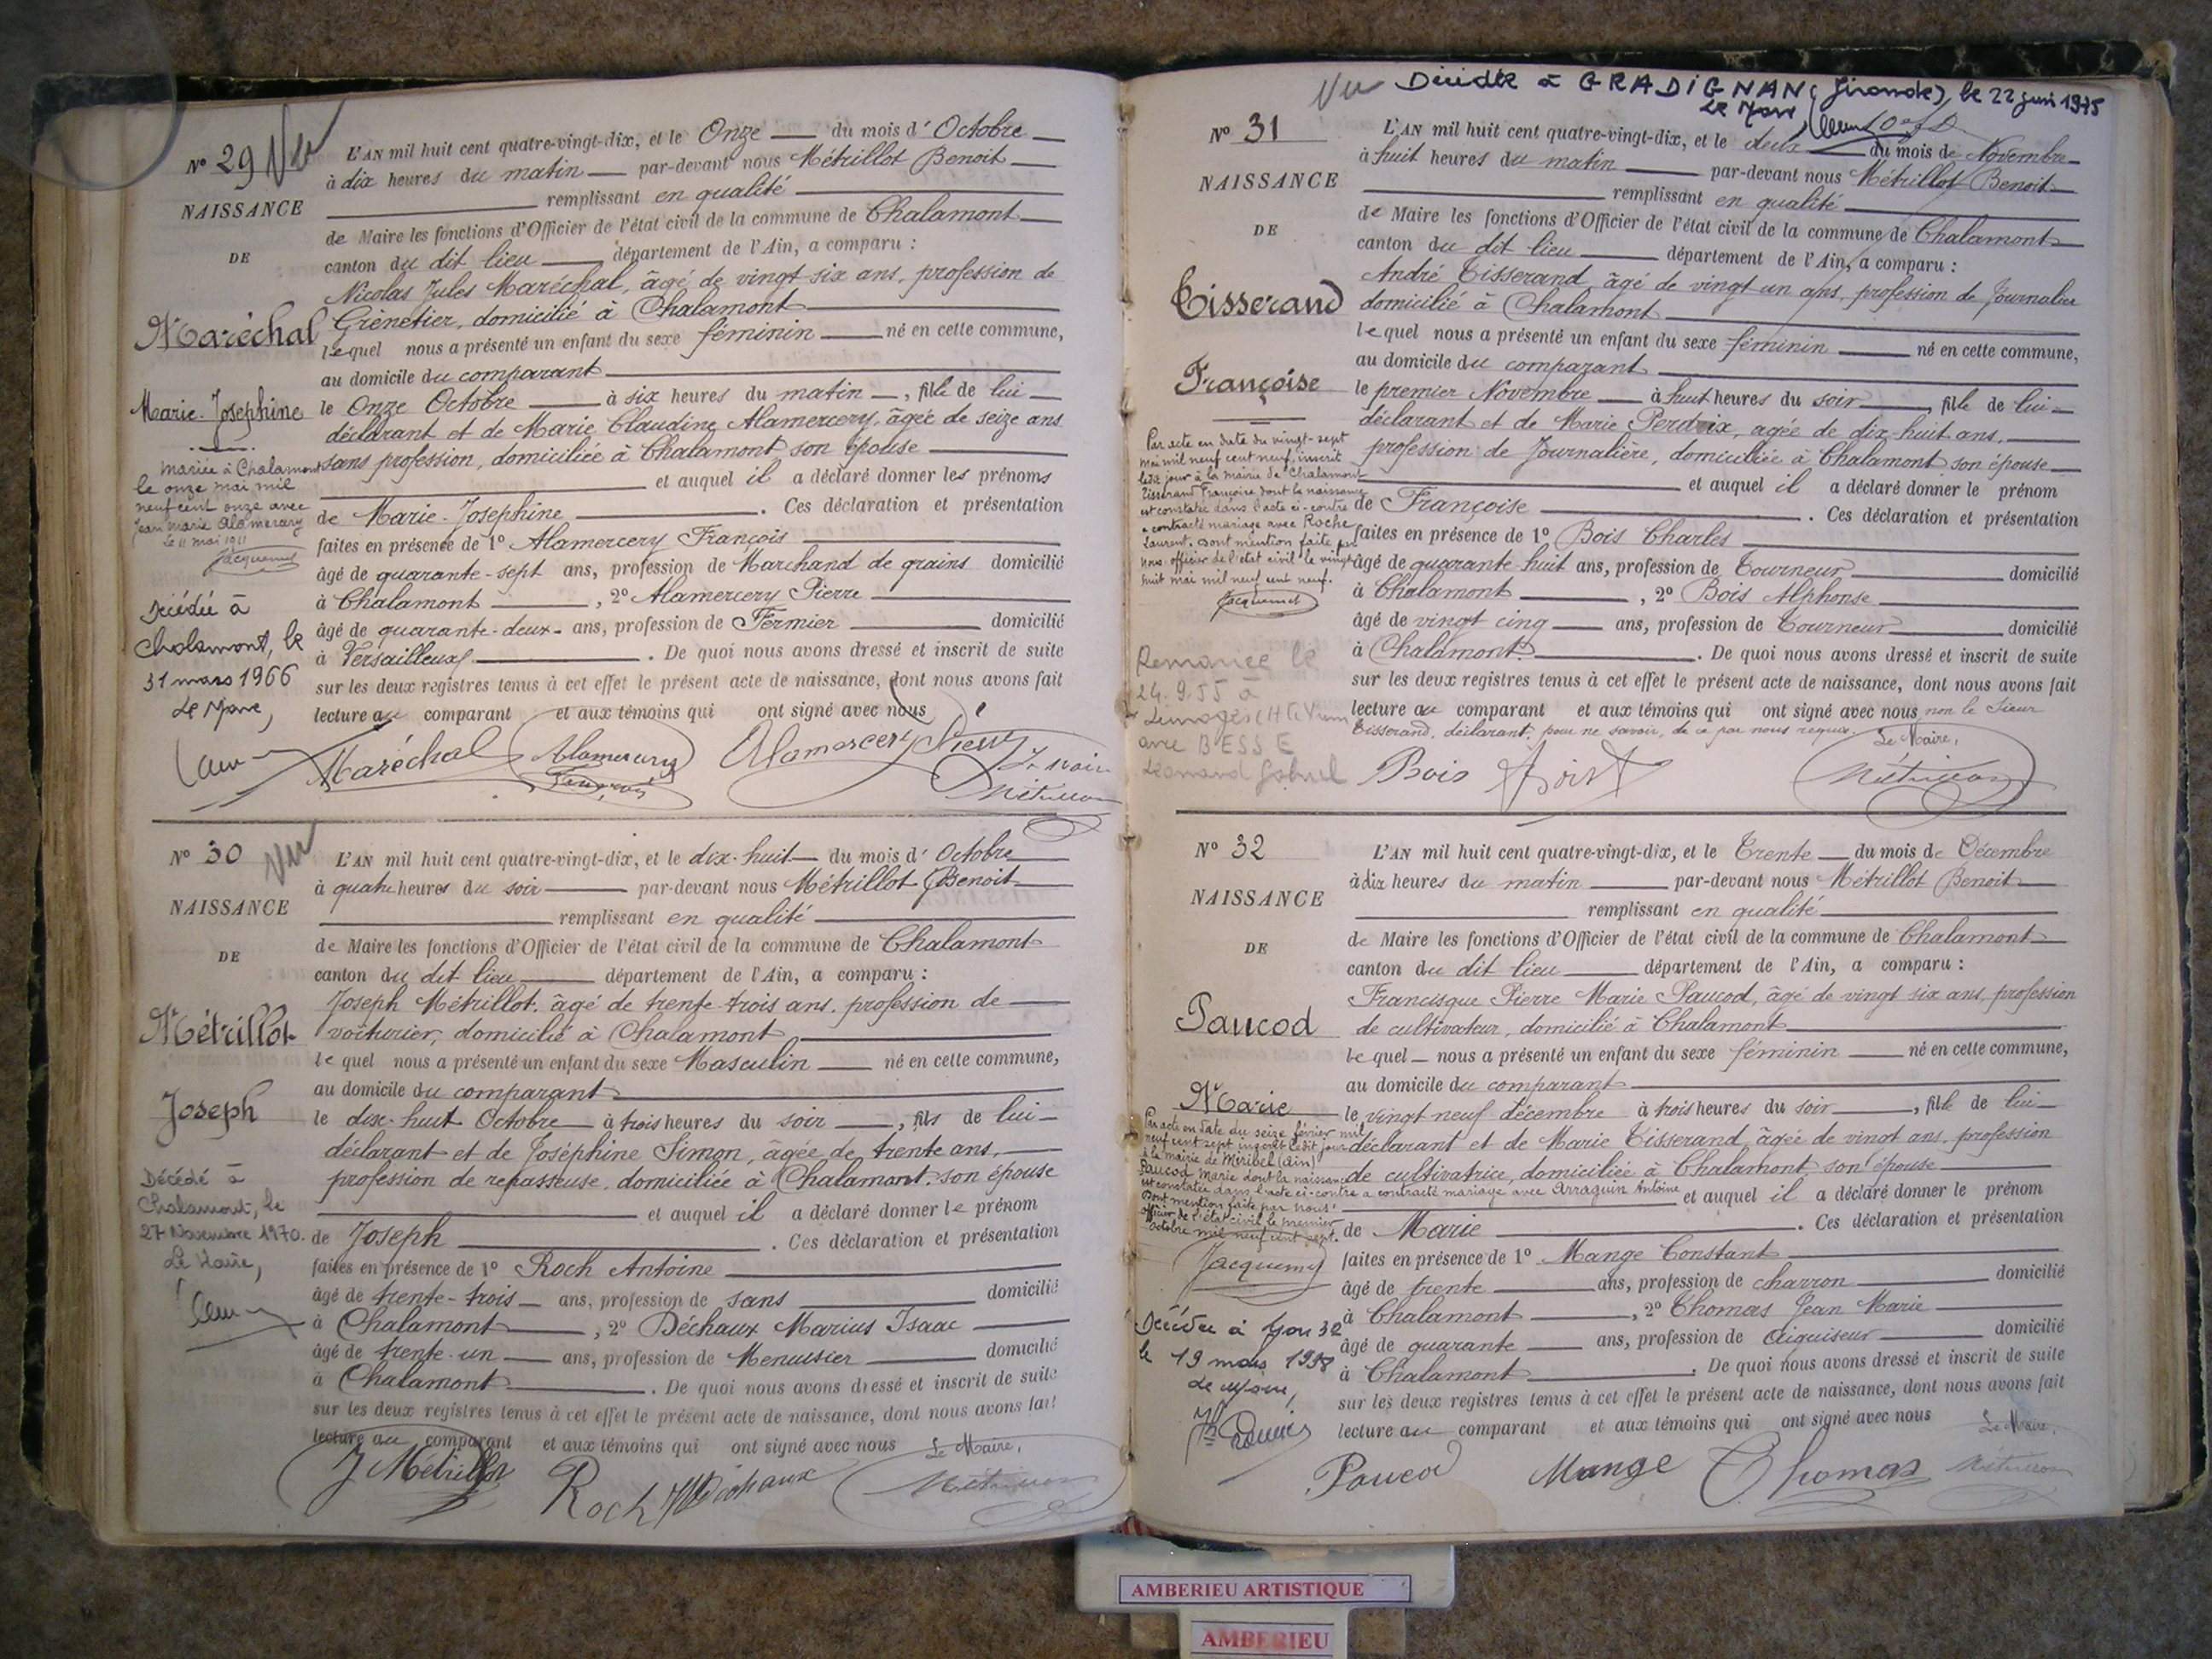 Nº 29 Vu
NAISSANCE
DE
Maréchal
Marie-Josephine
Mariée à Chalamont
le onze mai mil
neuf cent onze avec
Jean Marie Alamercery
Le 11 mai 1911
Jacquemet
Décédée à
Chalamont, le
31 mars 1966
Le Maire,
L'AN mil huit cent quatre-vingt-dix, et le Onze du mois d'Octobre
à dix heures du matin par-devant nous Métrillot Benoit
remplissant en qualité
de Maire les fonctions d'Officier de l'état civil de la commune de Chalamont
canton du dit lieu département de l'Ain, a comparu :
Nicolas Jules Maréchal, âgé de vingt six ans, profession de
Grènetier, domicilié à Chalamont
lequel nous a présenté un enfant du sexe féminin né en cette commune,
au domicile du comparant
le Onze Octobre à six heures du matin, fille de lui
déclarant et de Marie Claudine Alamercery, âgée de seize ans
sans profession, domiciliée à Chalamont son épouse
et auquel il a déclaré donner les prénoms
de Marie-Josephine. Ces déclaration et présentation
faites en présence de 1º Alamercery François
âgé de quarante-sept ans, profession de Marchand de grains domicilié
à Chalamont, 2º Alamercery Pierre
âgé de quarante-deux ans, profession de Fermier domicilié
à Versailleux. De quoi nous avons dressé et inscrit de suite
sur les deux registres tenus à cet effet le présent acte de naissance, dont nous avons fait
lecture au comparant et aux témoins qui ont signé avec nous
Maréchal Alamercery François Alamercery Pierre Le Maire
Métrillot
Nº 30 Vu
NAISSANCE
DE
Métrillot
Joseph
Décédé à
Chalamont, le
27 Novembre 1970.
Le Maire,
L'AN mil huit cent quatre-vingt-dix, et le dix-huit du mois d'Octobre
à quatre heures du soir par-devant nous Métrillot Benoit
remplissant en qualité
de Maire les fonctions d'Officier de l'état civil de la commune de Chalamont
canton du dit lieu département de l'Ain, a comparu :
Joseph Métrillot, âgé de trente-trois ans, profession de
voiturier, domicilié à Chalamont
lequel nous a présenté un enfant du sexe Masculin né en cette commune,
au domicile du comparant
le dix-huit Octobre à trois heures du soir, fils de lui
déclarant et de Joséphine Simon, âgée de trente ans,
profession de repasseuse, domiciliée à Chalamont, son épouse
et auquel il a déclaré donner le prénom
de Joseph. Ces déclaration et présentation
faites en présence de 1º Roch Antoine
âgé de trente-trois ans, profession de sans domicilié
à Chalamont, 2º Déchaux Marius Isaac
âgé de trente-un ans, profession de Menuisier domicilié
à Chalamont. De quoi nous avons dressé et inscrit de suite
sur les deux registres tenus à cet effet le présent acte de naissance, dont nous avons fait
lecture au comparant et aux témoins qui ont signé avec nous Le Maire,
J Métrillot Roch Déchaux Métrillot
Vu Décédée à GRADIGNAN (Gironde), le 22 juin 1975
Le Maire
Nº 31
NAISSANCE
DE
Tisserand
Françoise
Par acte en date du vingt-sept
mai mil neuf cent neuf, inscrit
ledit jour à la mairie de Chalamont
Tisserand Françoise dont la naissance
est constatée dans l'acte ci-contre
a contracté mariage avec Roche
Laurent. Dont mention faite par
nous officier de l'état civil le vingt
huit mai mil neuf cent neuf.
Jacquemet
Remariée le
24.9.55 à
Limoges (Hte Vienne
avec BESSE
Léonard Gabriel
L'AN mil huit cent quatre-vingt-dix, et le deux du mois de Novembre
à huit heures du matin par-devant nous Métrillot Benoit
remplissant en qualité
de Maire les fonctions d'Officier de l'état civil de la commune de Chalamont
canton du dit lieu département de l'Ain, a comparu :
André Tisserand, âgé de vingt un ans, profession de Journalier
domicilié à Chalamont
lequel nous a présenté un enfant du sexe féminin né en cette commune,
au domicile du comparant
le premier Novembre à huit heures du soir, fille de lui
déclarant et de Marie Perdrix, agée de dix-huit ans,
profession de Journalière, domiciliée à Chalamont son épouse
et auquel il a déclaré donner le prénom
de Françoise. Ces déclaration et présentation
faites en présence de 1º Bois Charles
âgé de quarante huit ans, profession de Tourneur domicilié
à Chalamont, 2º Bois Alphonse
âgé de vingt cinq ans, profession de Tourneur domicilié
à Chalamont. De quoi nous avons dressé et inscrit de suite
sur les deux registres tenus à cet effet le présent acte de naissance, dont nous avons fait
lecture au comparant et aux témoins qui ont signé avec nous non le Sieur
Tisserand, déclarant, pour ne savoir, de ce par nous requis. Le Maire,
Bois Bois A Métrillot
Nº 32
NAISSANCE
DE
Paucod
Marie
Par acte en date du seize février mil
neuf cent sept inscrit ledit jour
à la mairie de Miribel (Ain)
Paucod Marie dont la naissance
est constatée dans l'acte ci-contre a contracté mariage avec Arraguin Antoine
Dont mention faite par nous
officier de l'état civil le premier
octobre mil neuf cent sept.
Jacquemet
Décédée à Lyon 3e
le 19 mars 1958
Le Maire,
L'AN mil huit cent quatre-vingt-dix, et le Trente du mois de Décembre
à dix heures du matin par-devant nous Métrillot Benoit
remplissant en qualité
de Maire les fonctions d'Officier de l'état civil de la commune de Chalamont
canton du dit lieu département de l'Ain, a comparu :
Francisque Pierre Marie Paucod, âgé de vingt six ans, profession
de cultivateur, domicilié à Chalamont
lequel nous a présenté un enfant du sexe féminin né en cette commune,
au domicile du comparant
le vingt neuf décembre à trois heures du soir, fille de lui
déclarant et de Marie Tisserand, âgée de vingt ans, profession
de cultivatrice, domiciliée à Chalamont, son épouse
et auquel il a déclaré donner le prénom
de Marie. Ces déclaration et présentation
faites en présence de 1º Mange Constant
âgé de trente ans, profession de charron domicilié
à Chalamont, 2º Thomas Jean Marie
âgé de quarante ans, profession de Aiguiseur domicilié
à Chalamont. De quoi nous avons dressé et inscrit de suite
sur les deux registres tenus à cet effet le présent acte de naissance, dont nous avons fait
lecture au comparant et aux témoins qui ont signé avec nous Le Maire,
Paucod Mange Thomas Métrillot
AMBERIEU ARTISTIQUE
AMBERIEU